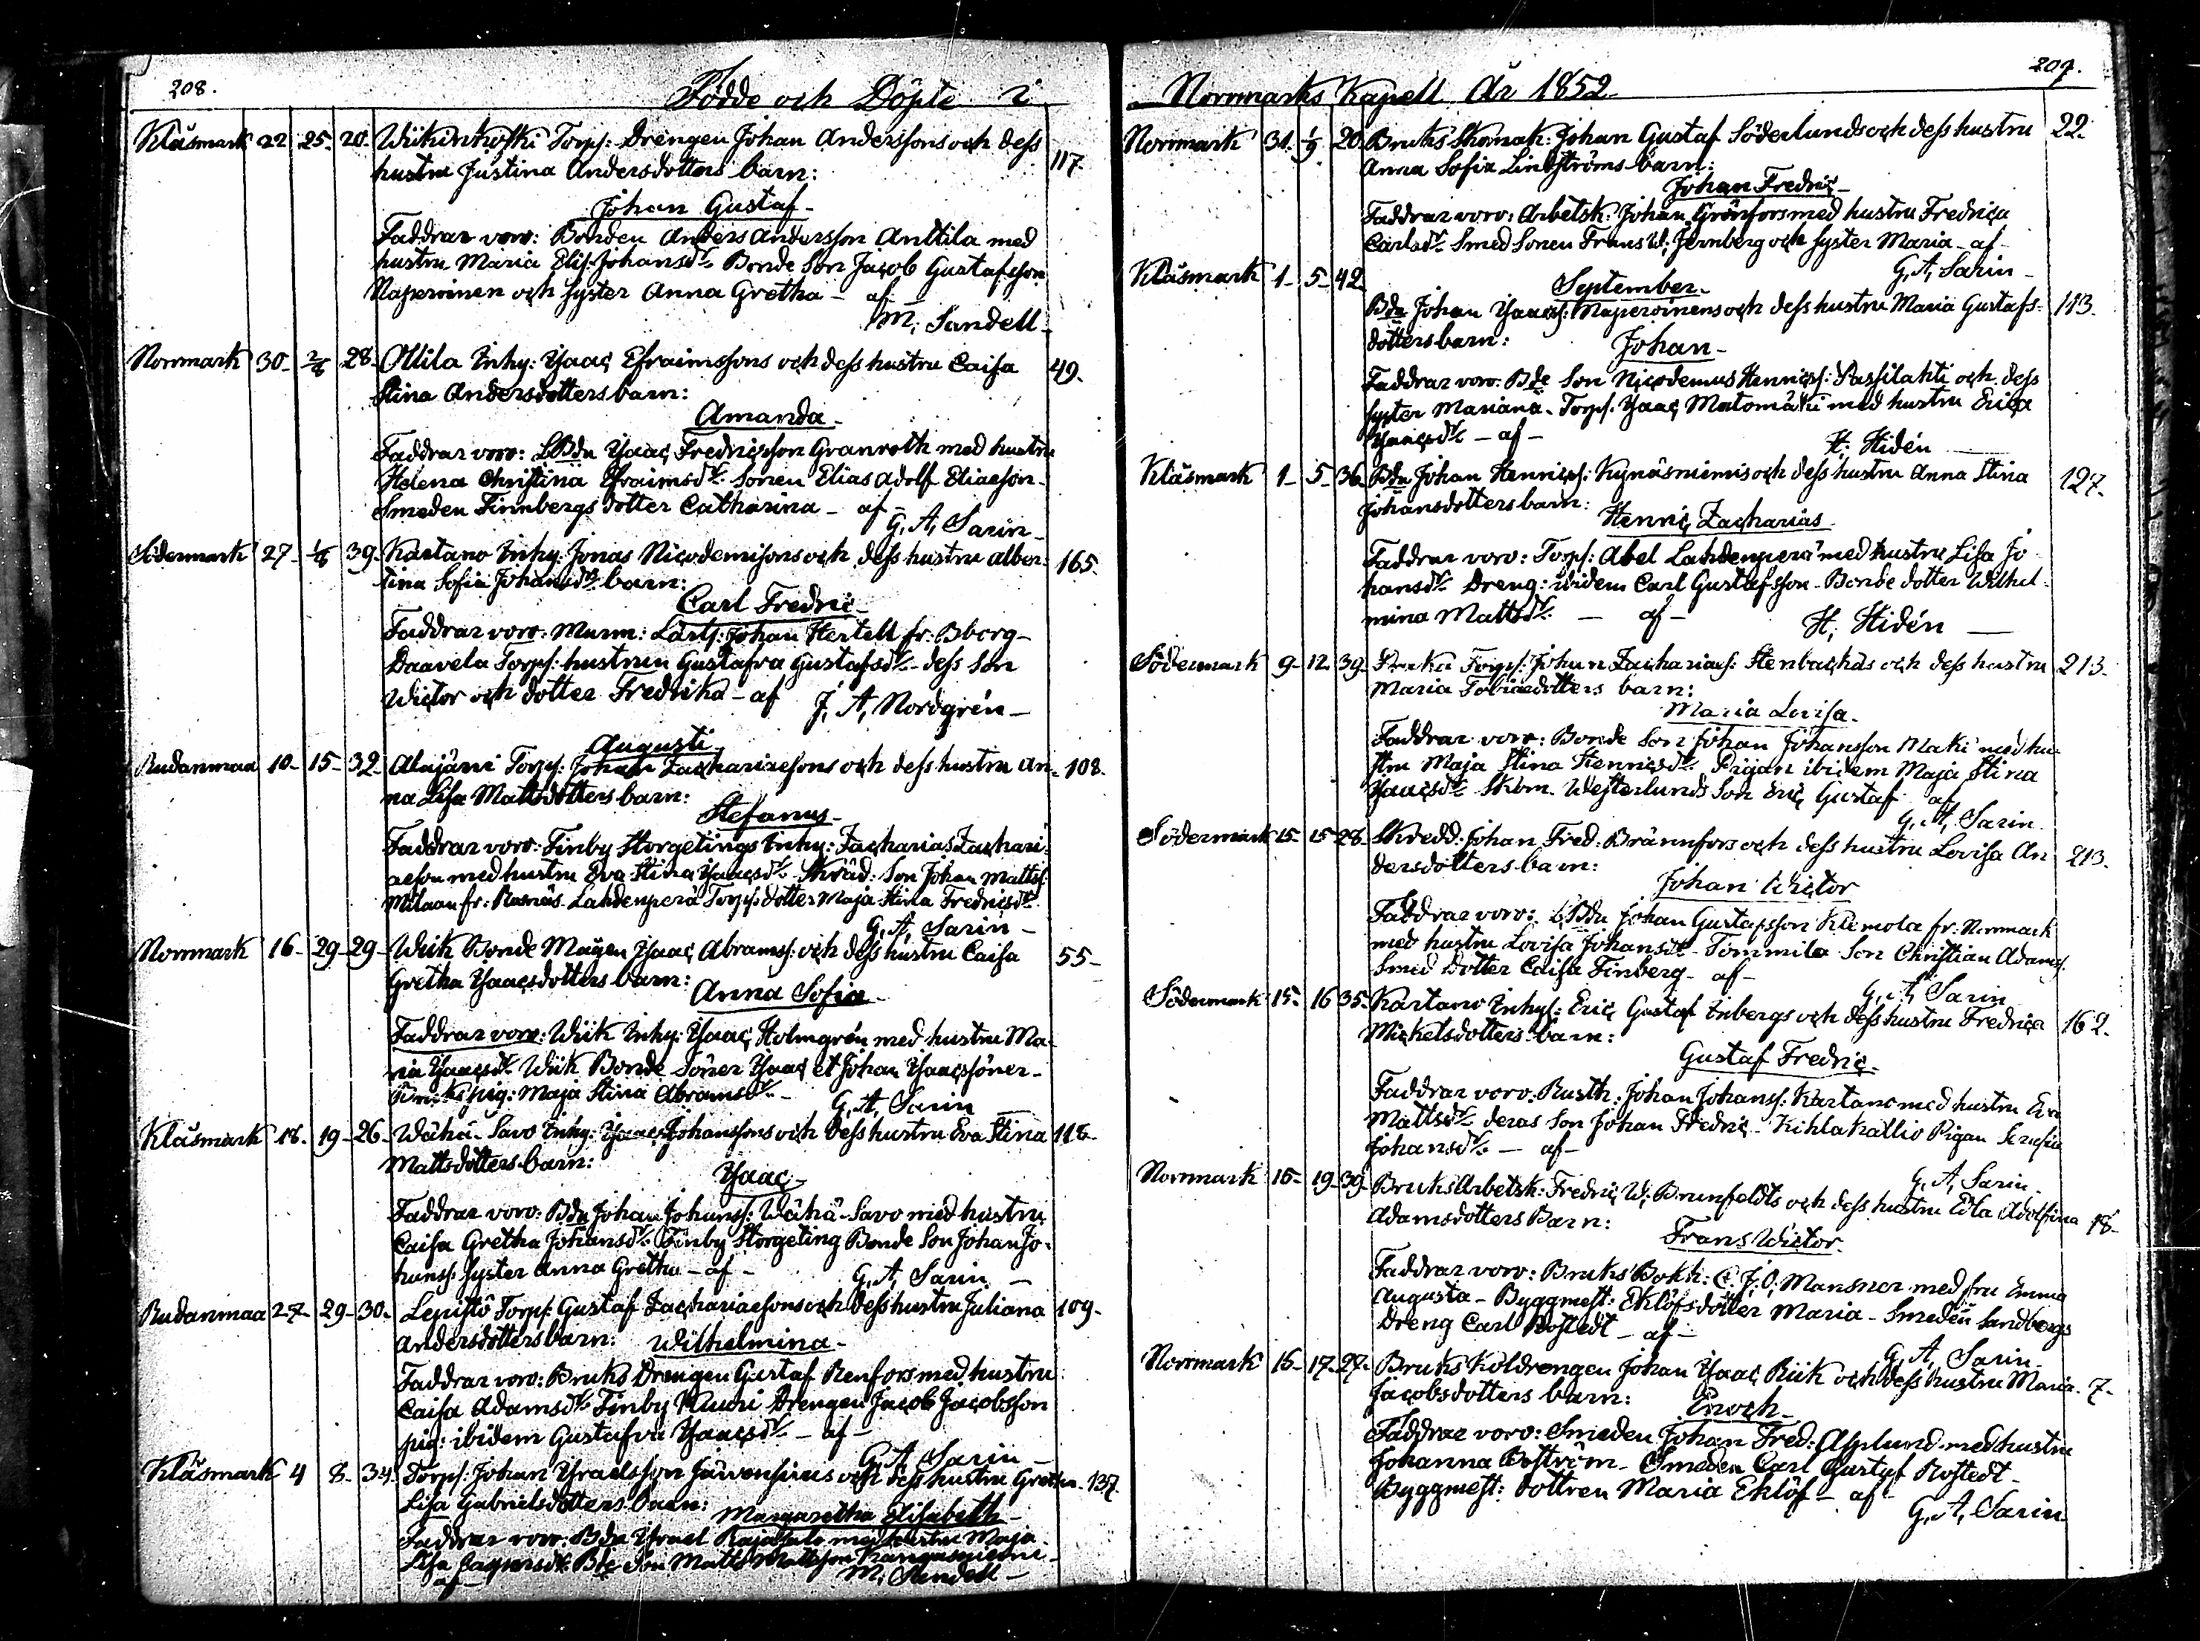 208.
Födde och Döpte i
Klåsmark 22 25. 20. Wiikinkoski Torp: Drengen Johan Anderssons och dess
hustru Justina Andersdotters barn: 117.
Johan Gustaf
Faddrar voro: Bonden Anders Andersson Anttila med
hustru Maria Elis: Johansdr. Bonde Son Jacob Gustafsson
och syster Anna Gretha - af -
M. Sandell
Norrmark 30 2/8 28. Ollila Inhy: Ysaac Efraimssons och dess hustru Caisa 49.
Stina Andersdotters barn:
Amanda
Faddrar voro: Bdn Ysaac Fredricsson Granroth med hustru
Helena Christina Efraimsdr. Sonen Elias Adolf Eliasson
Smeden Finnbergs dotter Catharina - af -
G. A. Sarin
Södermark 27 1/8 39. Kartano Inhy: Jonas Nicodemisons och dess hustru Alber- 165.
tina Sofia Johansdrs barn:
Carl Fredric
Faddrar voro: Murm: Lärl: Johan Hertell fr: Bborg -
Daavela Torps: hustrun Gustafva Gustafsdr. dess Son
Wictor och dotter Fredrika - af J. A. Nordgrén -
Augusti
Rudanmaa 10 15 32. Alajärvi Torps: Johan Zachariaesons och dess hustru An- 108.
na Lisa Mattsdotters barn:
Stefanus
Faddrar voro: Finby Storgetings Inhy: Zacharias Zachari-
aeson med hustru Eva Stina Ysaacsdr. Skräd: Son Johan Mattss:
fr: Lahdenperä Torps: dotter Maja Stina Fredricsdr.
G. A. Sarin -
Norrmark 16 29 29. Wiik Bonde Mågen Ysaac Abramss: och dess hustru Caisa 55
Gretha Ysaacsdotters barn:
Anna Sofia
Faddrar voro: Wiik Inhy: Ysaac Holmgrén med hustru Ma-
ria Ysaacsdr. Wiik Bonde Söner Ysaac et Johan Ysaacssöner -
Bruks pig: Maja Stina Abramsdr.
G. A. Sarin
Klåsmark 18. 19 26. Wähä-Savo Inhy: Ysaac Johanssons och dess hustru Eva Stina 118
Mattsdotters barn:
Ysaac
Faddrar voro: Bdn Johan Johanss: Wähä-Savo med hustru
Caisa Gretha Johansdr. Finby Storgeting Bonde Son Johan Jo-
hanss: syster Anna Gretha - af -
G. A. Sarin -
Rudanmaa 27 29 30. Lepistö Torps: Gustaf Zachariaesons och dess hustru Juliana 109.
Andersdotters barn: Wilhelmina
Faddrar voro: Bruks Drengen Gustaf Renfors med hustru
Caisa Adamsdr. Finby Drengen Jacob Jacobsson
pig: ibidem Gustafva Ysaacsdr. - af -
G. A. Sarin -
Klåsmark 4 8 34. Torps: Johan Ysraelsson och dess hustru Gretha 137.
Lisa Gabrielsdotters barn:
Margaretha Elisabeth
Faddrar voro: Bdn Ysrael med hustru Maja
Lisa Bde Son Matts Mattsson
af - M. Sandell -
209.
Norrmarks Kapell År 1852
Norrmark 31. 1/9 20. Bruks Skomak: Johan Gustaf Söderlunds och dess hustru 22.
Anna Sofia Lindströms barn:
Johan Fredric
Faddrar voro: Arbetsk: Johan Grönfors med hustru Fredrica
Carlsdr. Smed Sonen Frans W. Jernberg och syster Maria - af -
G. A. Sarin -
September
Klåsmark 1 5 42. Bdn Johan Ysaacss: och dess hustru Maria Gustafs- 113.
dotters barn:
Johan
Faddrar voro: Bde Son Nicodemus Henricss: Passilahti och dess
syster Mariana. Torps: Ysaac Matomäki med hustru Erica
Ysaacsdr. - af -
H. Hidén
Klåsmark 1 5 36. Bdn Johan Henricss: Kynäsniemis och dess hustru Anna Stina 127.
Johansdotters barn:
Henric Zacharias
Faddrar voro: Torps: Abel Lahdenperä med hustru Lisa Jo-
hansdr. Dreng: ibidem Carl Gustafsson - Bonde dotter Wilhel-
mina Mattsdr. - af -
H. Hidén
Södermark 9 12 39. Torps: Johan Zachariaes: Stenbackas och dess hustru 213.
Maria Tobiaedotters barn:
Maria Lovisa
Faddrar voro: Bonde Son Johan Johansson Mäki med hu-
stru Maja Stina Henricsdr. Pigan ibidem Maja Stina
Ysaacsdr. Skom. Westerlunds Son Eric Gustaf af
G. A. Sarin
Södermark 15 15 28. Skredd: Johan Fred: Brännfors och dess hustru Lovisa An- 213.
dersdotters barn:
Johan Wictor
Faddrar voro: Bdn Johan Gustafsson Klemola fr: Norrmark
med hustru Lovisa Johansdr. Tommila Son Christian Adamss:
Smed dotter Caisa Finberg - af -
G. A. Sarin
Södermark 15 16 35. Kartano Inhys: Eric Gustaf Inbergs och dess hustru Fredrica 162.
Mickelsdotters barn:
Gustaf Fredric
Faddrar voro: Rusth: Johan Johanss: Kartano med hustru Eva
Mattsdr. deras Son Johan Fredric - Kihlakallio Pigan
Johansdr. - af -
G. A. Sarin
Norrmark 15 19 39. Bruks Arbetsk: Fredric W. Brunfeldts och dess hustru Edla Adolfina 18.
Adamsdotters Barn:
Frans Wictor
Faddrar voro: Bruks Bokh: C. J. O. Mansner med fru Emma
Augusta - Byggmest: Eklöfs dotter Maria - Smeden Sandbergs
Dreng Carl Rostedt - af -
G. A. Sarin
Norrmark 16 17. 27. Bruks Koldrengen Johan Ysaac Riik och dess hustru Maria 7.
Jacobsdotters barn:
Enoch
Faddrar voro: Smeden Johan Fred: Asplund med hustru
Johanna Boström - Smeden Carl Gustaf Rostedt -
Byggmest: dottren Maria Eklöf - af -
G. A. Sarin